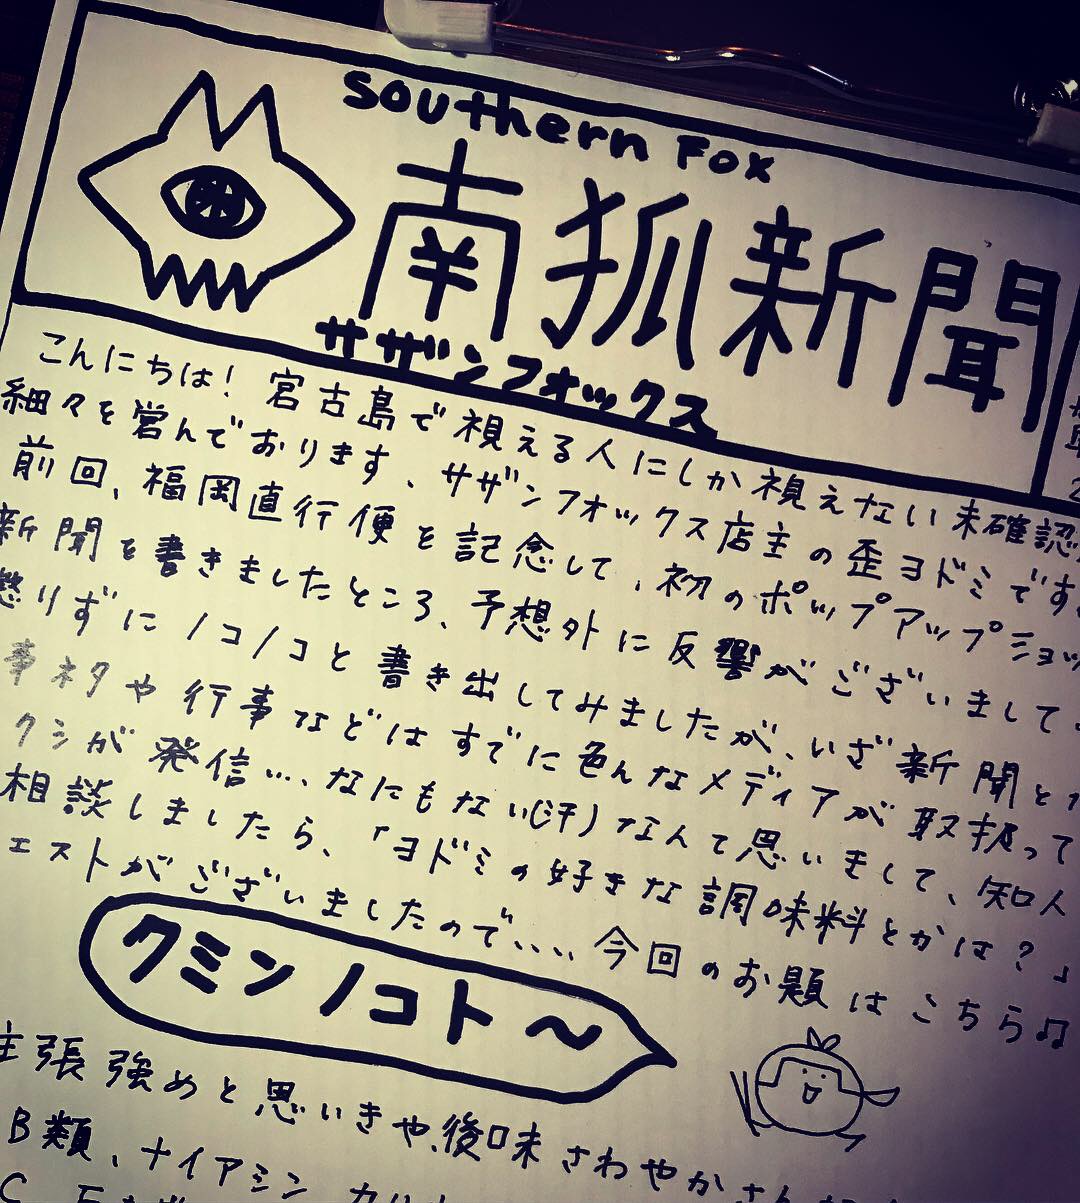 southern Fox
南狐新聞
サザンフォックス
こんにちは！宮古島で視える人にしか視えない未確認
細々を営んでおります、サザンフォックス店主の歪ヨドミです。
前回、福岡直行便を記念して、初のポップアップショッ
新聞を書きましたところ、予想外に反響がございまして
懲りずにノコノコと書き出してみましたが、いざ新聞と
事ネタや行事などはすでに色んなメディアが取扱って
クシが発信…、なにもない(汗)なんて思いまして、知人
相談しましたら、「ヨドミの好きな調味料とかは？」
エストがございましたので、、、、今回のお題はこちら♫
クミンノコト〜
主張強めと思いきや、後味さわやかさん
B類、ナイアシン
C